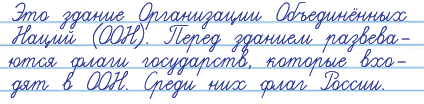 Это здание Организации Объединённых
Наций (ООН). Перед зданием развева-
ются флаги государств, которые вхо-
дят в ООН. Среди них флаг России.